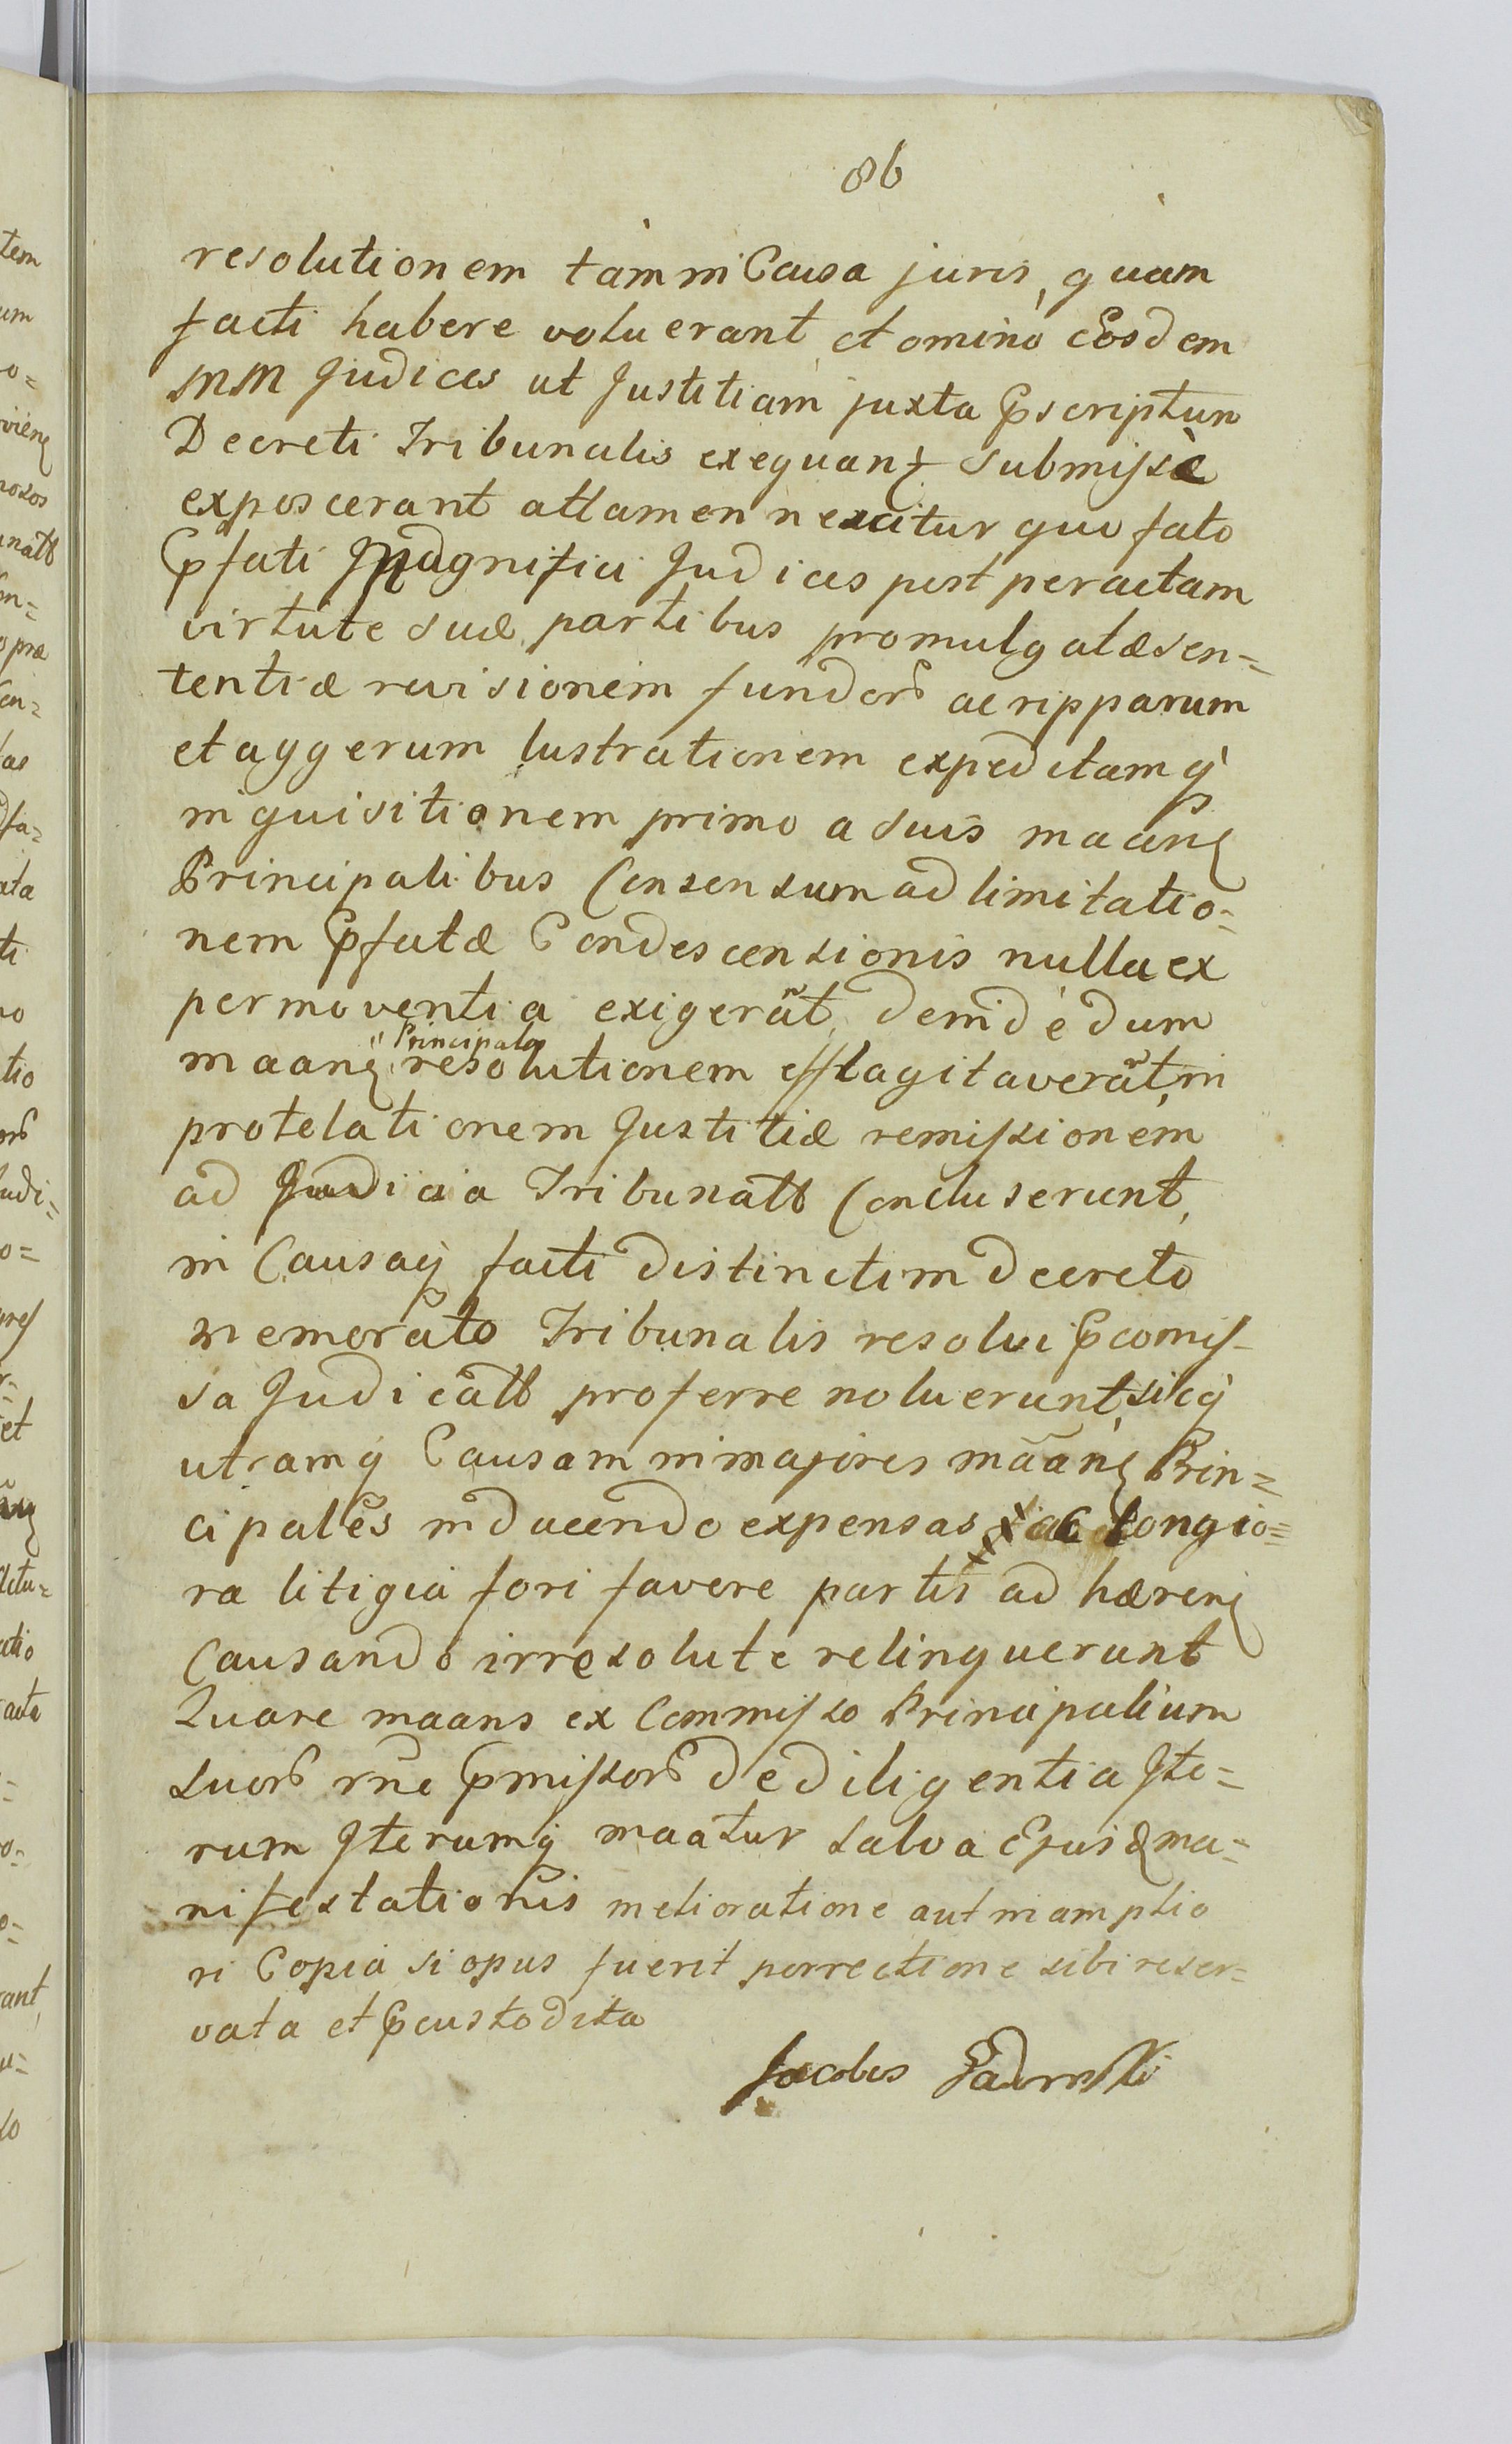 86
resolutionem tam in Causa juris, quam
facti habere voluerant, et omino Eosdem
MM Judices ut Justitiam juxta Pscriptum
Decreti Tribunalis exequant submisse
exposcerant attamen nescitur quo fato
Pfati Magnifici Judices post peractam
virtute suæ partibus promulgatæ sen=
tentiæ revisionem fundor ac ripparum
et aggerum lustrationem expeditamq
inquisitionem primo a suis maan
Principalibus Consensum ad limitatio=
nem Pfatæ Condescensionis nulla ex
permoventia exigerāt, deinde dum
maan Principales resolutionem efflagitaverāt, in
protelationem Justitiæ remissionem
ad Judicia Tribunall Concluserunt,
in Causaq facti distinctim decreto
memorato Tribunalis resolui Pcomis-
sa Judicall proferre noluerunt, sicq
utramq Causam in majores māan Prin=
cipales inducendo expensas ac longio=
ra litigia fori favore partis adhæren
Causando irresolute relinquerunt
Quare maans ex Commisso Principalium
suor rne Pmissor de diligentia Ite=
rum Iterumq maatur salva Ejusd ma=
nifestationis melioratione aut in amplio
ri Copia si opus fuerit porrectione sibi reser=
vata et Pcustodita
Jacobus